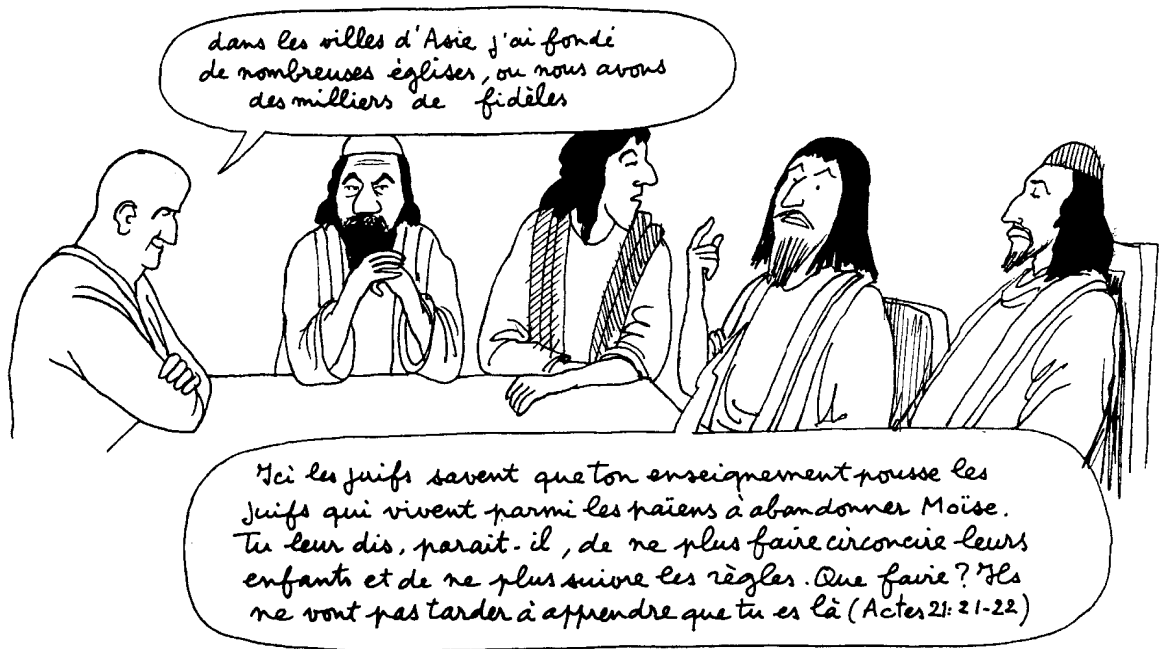 dans les villes d'Asie j'ai fondé
de nombreuses églises, ou nous avons
des milliers de fidèles
Ici les juifs savent que ton enseignement pousse les
juifs qui vivent parmi les païens à abandonner Moïse.
Tu leur dis, parait-il, de ne plus faire circoncire leurs
enfants et de ne plus suivre les règles. Que faire? Ils
ne vont pas tarder à apprendre que tu es là (Actes 21: 21-22)